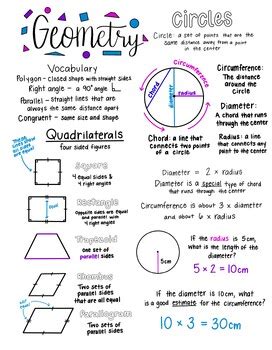 Geometry
Vocabulary
Polygon - closed shape with straight sides
Right angle - a 90° angle
Parallel - straight lines that are
always the same distance apart
Congruent - same size and shape
Quadrilaterals
four sided figures
Square
4 equal sides &
4 right angles
Rectangle
Opposite sides are equal and
parallel with
4 right angles
Trapezoid
one set of
parallel sides
Rhombus
Two sets of
parallel sides
that are all equal
Parallelogram
Two sets of
parallel sides
Circles
Circle: a set of points that are the
same distance away from a point
in the center
Circumference
Chord
diameter
radius
Circumference:
The distance
around the
circle
Diameter:
A chord that runs
through the center
Chord: a line that
connects two points
of a circle
Radius: a line
that connects any
point to the center
Diameter = 2 × radius
Diameter is a special type of chord
that runs through the center
Circumference is about 3 × diameter
and about 6 × radius
5cm
If the radius is 5cm,
what is the length of the
diameter?
5 × 2 = 10cm
If the diameter is 10cm, what
is a good estimate for the circumference?
10 × 3 = 30cm